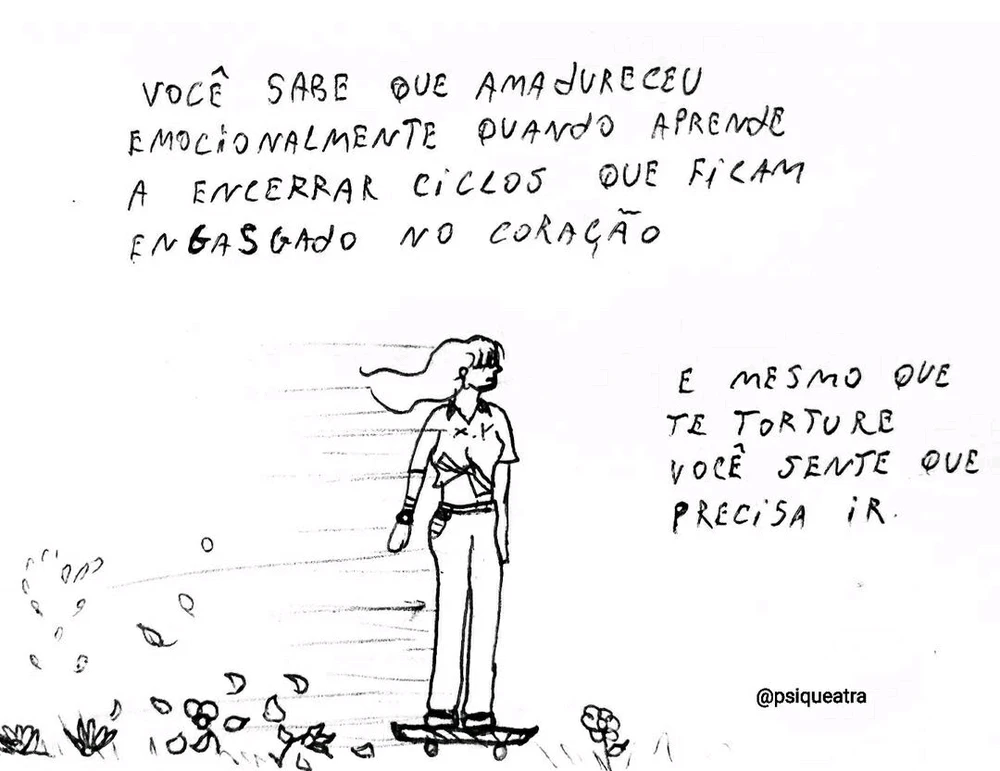 VOCÊ SABE QUE AMADURECEU
EMOCIONALMENTE QUANDO APRENDE
A ENCERRAR CICLOS QUE FICAM
ENGASGADO NO CORAÇÃO
E MESMO QUE
TE TORTURE
VOCÊ SENTE QUE
PRECISA IR.
@psiqueatra